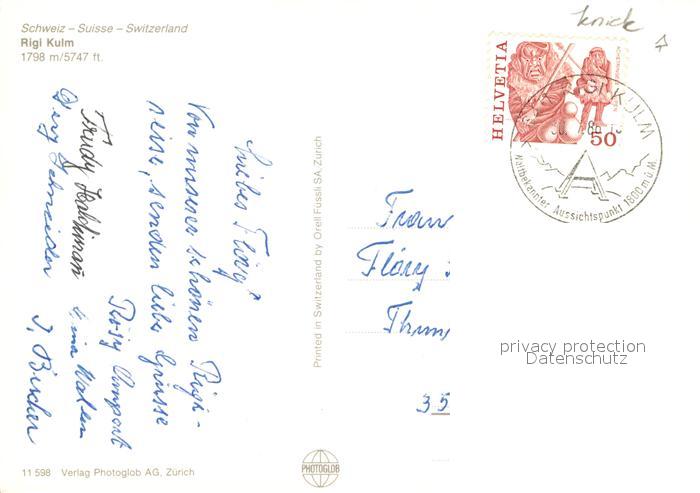 Schweiz – Suisse – Switzerland
Rigi Kulm
1798 m/5747 ft.
Knick
HELVETIA
50
RIGI KULM
Weltbekannter Aussichtspunkt 1800 m ü.M.
Liebes Flöry
Von unserer schönen Rigi-
reise, senden liebe Grüsse
Rösy
Trudy Haldiman
Schneider
J. Bircher
Printed in Switzerland by Orell Füssli SA, Zürich
Frau
Flöry
Thun
35
privacy protection
Datenschutz
PHOTOGLOB
11 598 Verlag Photoglob AG, Zürich